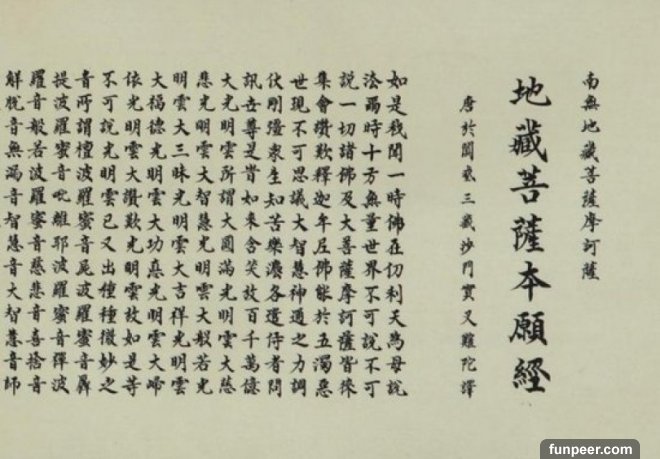 南無地藏菩薩摩訶薩
地藏菩薩本願經
唐於闐國三藏沙門實叉難陀譯
如是我聞一時佛在忉利天為母說
法爾時十方無量世界不可說不可
說一切諸佛及大菩薩摩訶薩皆來
集會讚歎釋迦牟尼佛能於五濁惡
世現不可思議大智慧神通之力調
伏剛彊眾生知苦樂法各遣侍者問
訊世尊是時如來含笑放百千萬億
大光明雲所謂大圓滿光明雲大慈
悲光明雲大智慧光明雲大般若光
明雲大三昧光明雲大吉祥光明雲
大福德光明雲大功德光明雲大歸
依光明雲大讚歎光明雲放如是等
不可說光明雲已又出種種微妙之
音所謂檀波羅蜜音尸波羅蜜音羼
提波羅蜜音毗離耶波羅蜜音禪波
羅音般若波羅蜜音慈悲音喜捨音
解脫音無漏音智慧音大智慧音師
funpeer.com